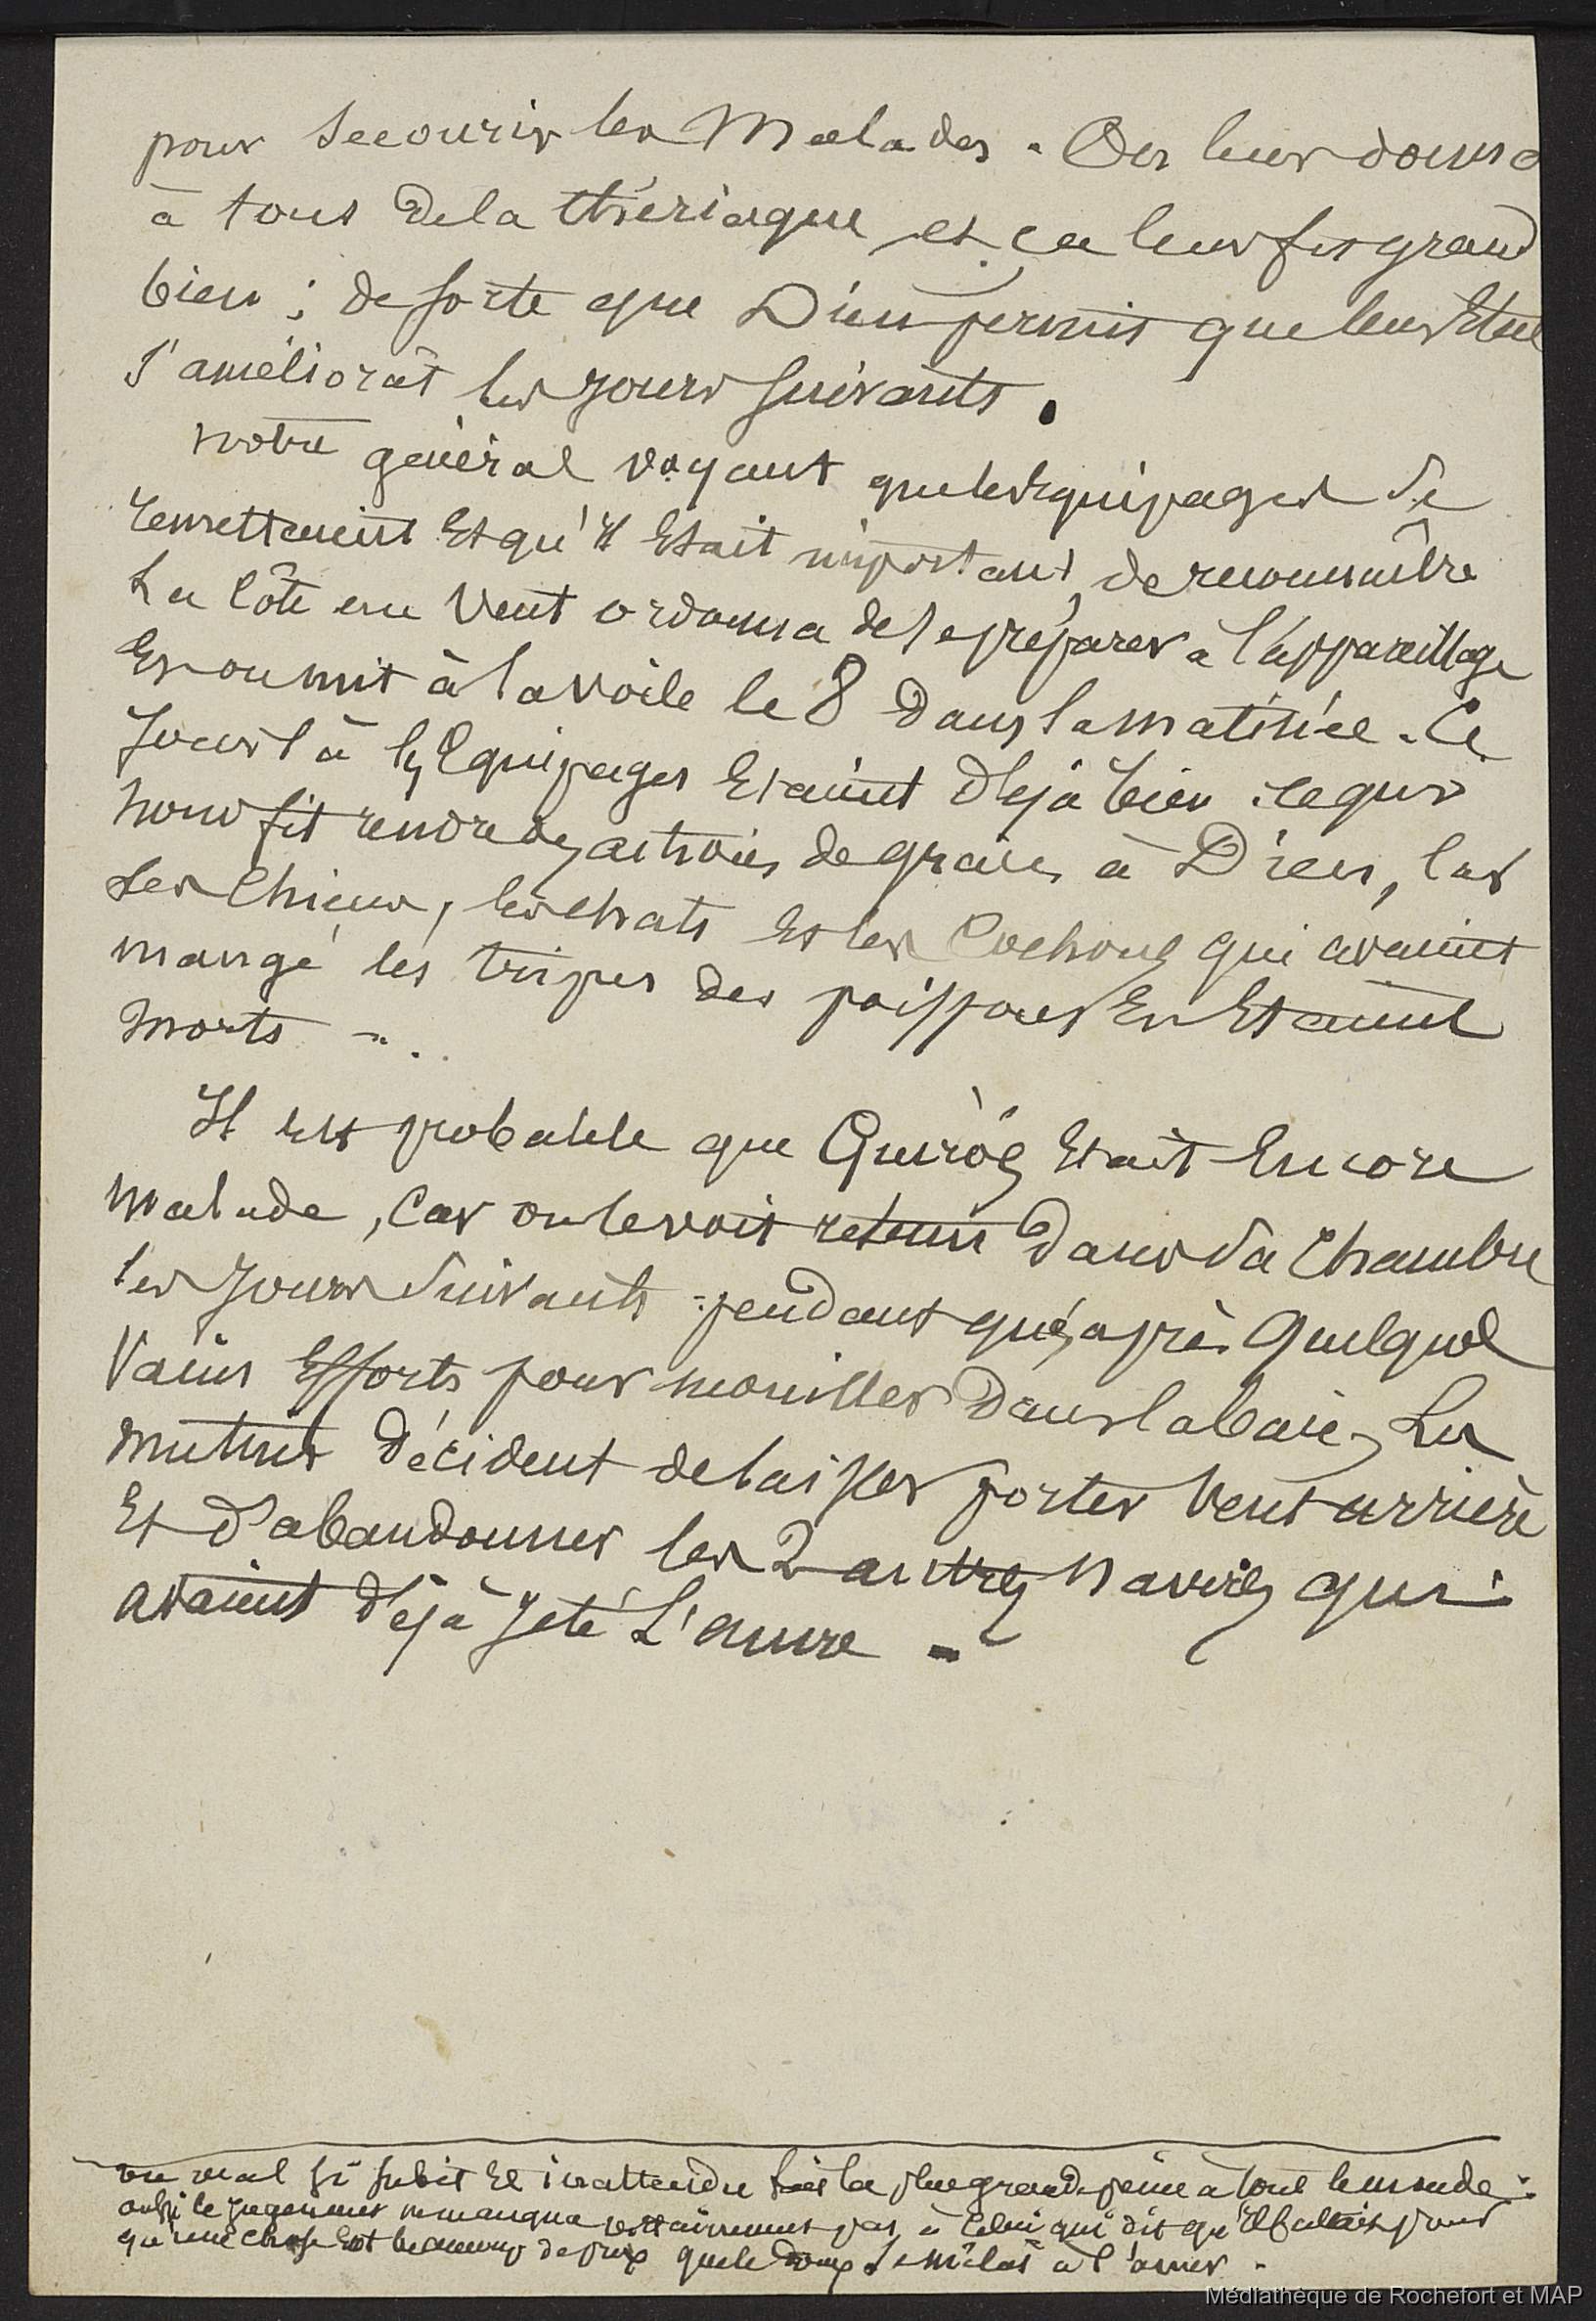 pour secourir les Malades. On leur donna
à tous de la thériaque et ça leur fit grand
bien ; de sorte que Dieu permit que leur état
s'améliorât les jours suivants.
notre général voyant que les équipages se
remettaient Et qu'il Etait important, de reconnaître
la côte au Vent ordonna de se préparer à l'appareillage
Et on mit à la voile le 8 dans la matinée. Ce
Jour là les Equipages Etaient déjà bien ce qui
nous fit rendre des actions de grâces à Dieu, car
Les Chiens, les chats Et les Cochons qui avaient
mangé les tripes des poissons En Etaient
morts -.
Il est probable que Quirós Etait Encore
malade, Car on le voit retenu dans sa Chambre
les Jours Suivants pendant qu'après Quelques
Vains Efforts pour mouiller dans la baie, Les
mutins décident de laisser porter Vent arrière
Et d'abandonner les 2 autres Navires qui
avaient déjà Jeté L'ancre -
un mal si subit Et inattendu fait la plus grande peine à tout le monde ;
aussi le jugement ne manqua certainement pas à Celui qui dit qu'Il fallait pour
qu'une chose Eut beaucoup de prix que le doux se mêlat à l'amer -
Médiathèque de Rochefort et MAP